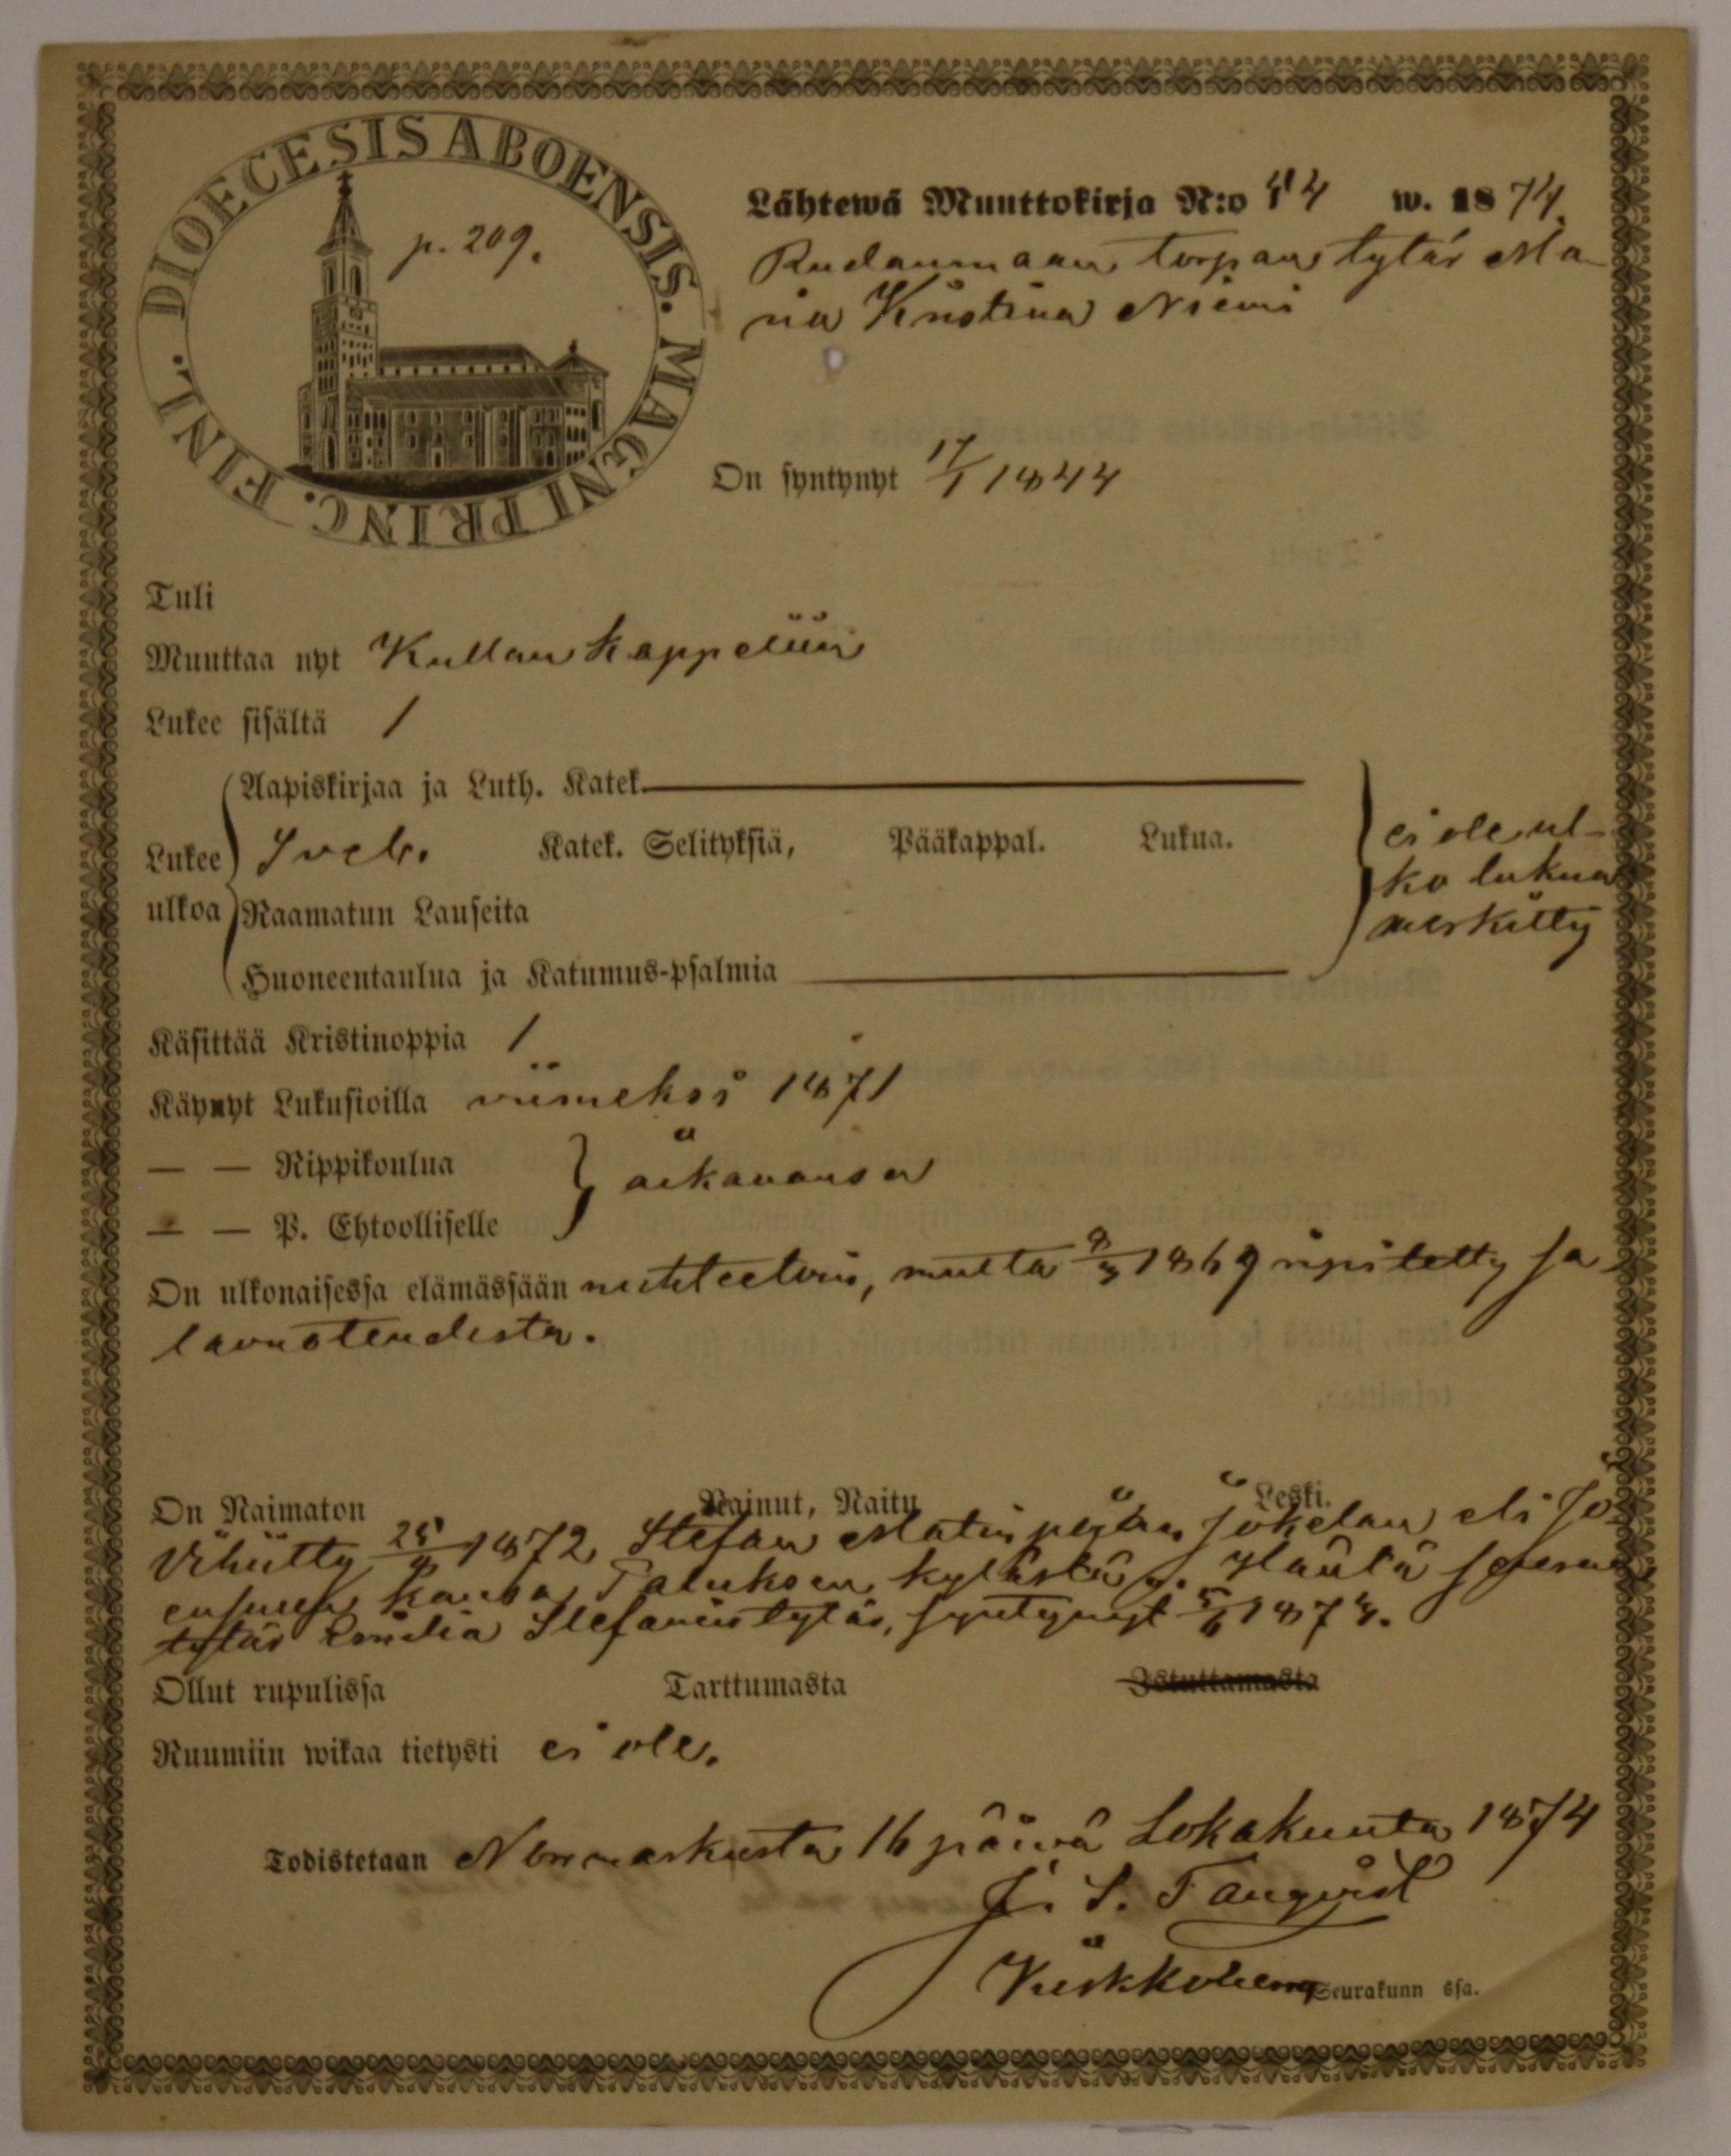 DIOECESIS ABOENSIS. MAGNI PRINC. FINL.
p. 209.
Lähtewä Muuttokirja N:o 44 w. 1874.
Rudanmaan torpan tytär Ma-
ria Kristina Niemi
On syntynyt 17/1 1844
Tuli
Muuttaa nyt Kullan kappeliin
Lukee sisältä 1
Aapiskirjaa ja Luth. Katek.
Lukee ulkoa Sveb. Katek. Selityksiä, Pääkappal. Lukua.
ei ole ul-
ko lukua
merkitty
Raamatun Lauseita
Huoneentaulua ja Katumus-psalmia
Käsittää Kristinoppia 1
Käynyt Lukusioilla viimeksi 1871
— — Rippikoulua
aikanansa
— — P. Ehtoolliselle
On ulkonaisessa elämässään nuhteetoin, mutta 1869 ripitetty sa-
lavuoteudesta.
On Naimaton Nainut, Naitu Leski.
Vihitty 1872 Stefan Matinpojan Jokelan eli Jo-
ensuun kanssa Paluksen kylästä Ylua
tytär Emilia Stefanintytär, syntynyt 1874.
Ollut rupulissa Tarttumasta Istuttamasta
Ruumiin wikaa tietysti ei ole.
Todistetaan Norrmarkusta 16 päivä Lokakuuta 1874
J. S. Tanqvist
Kirkkoherra Seurakunn ssa.